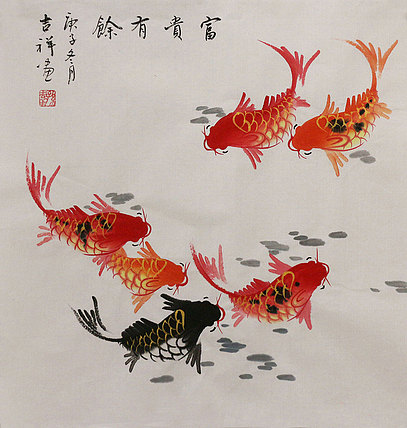 富貴有餘
庚子冬月
吉祥画